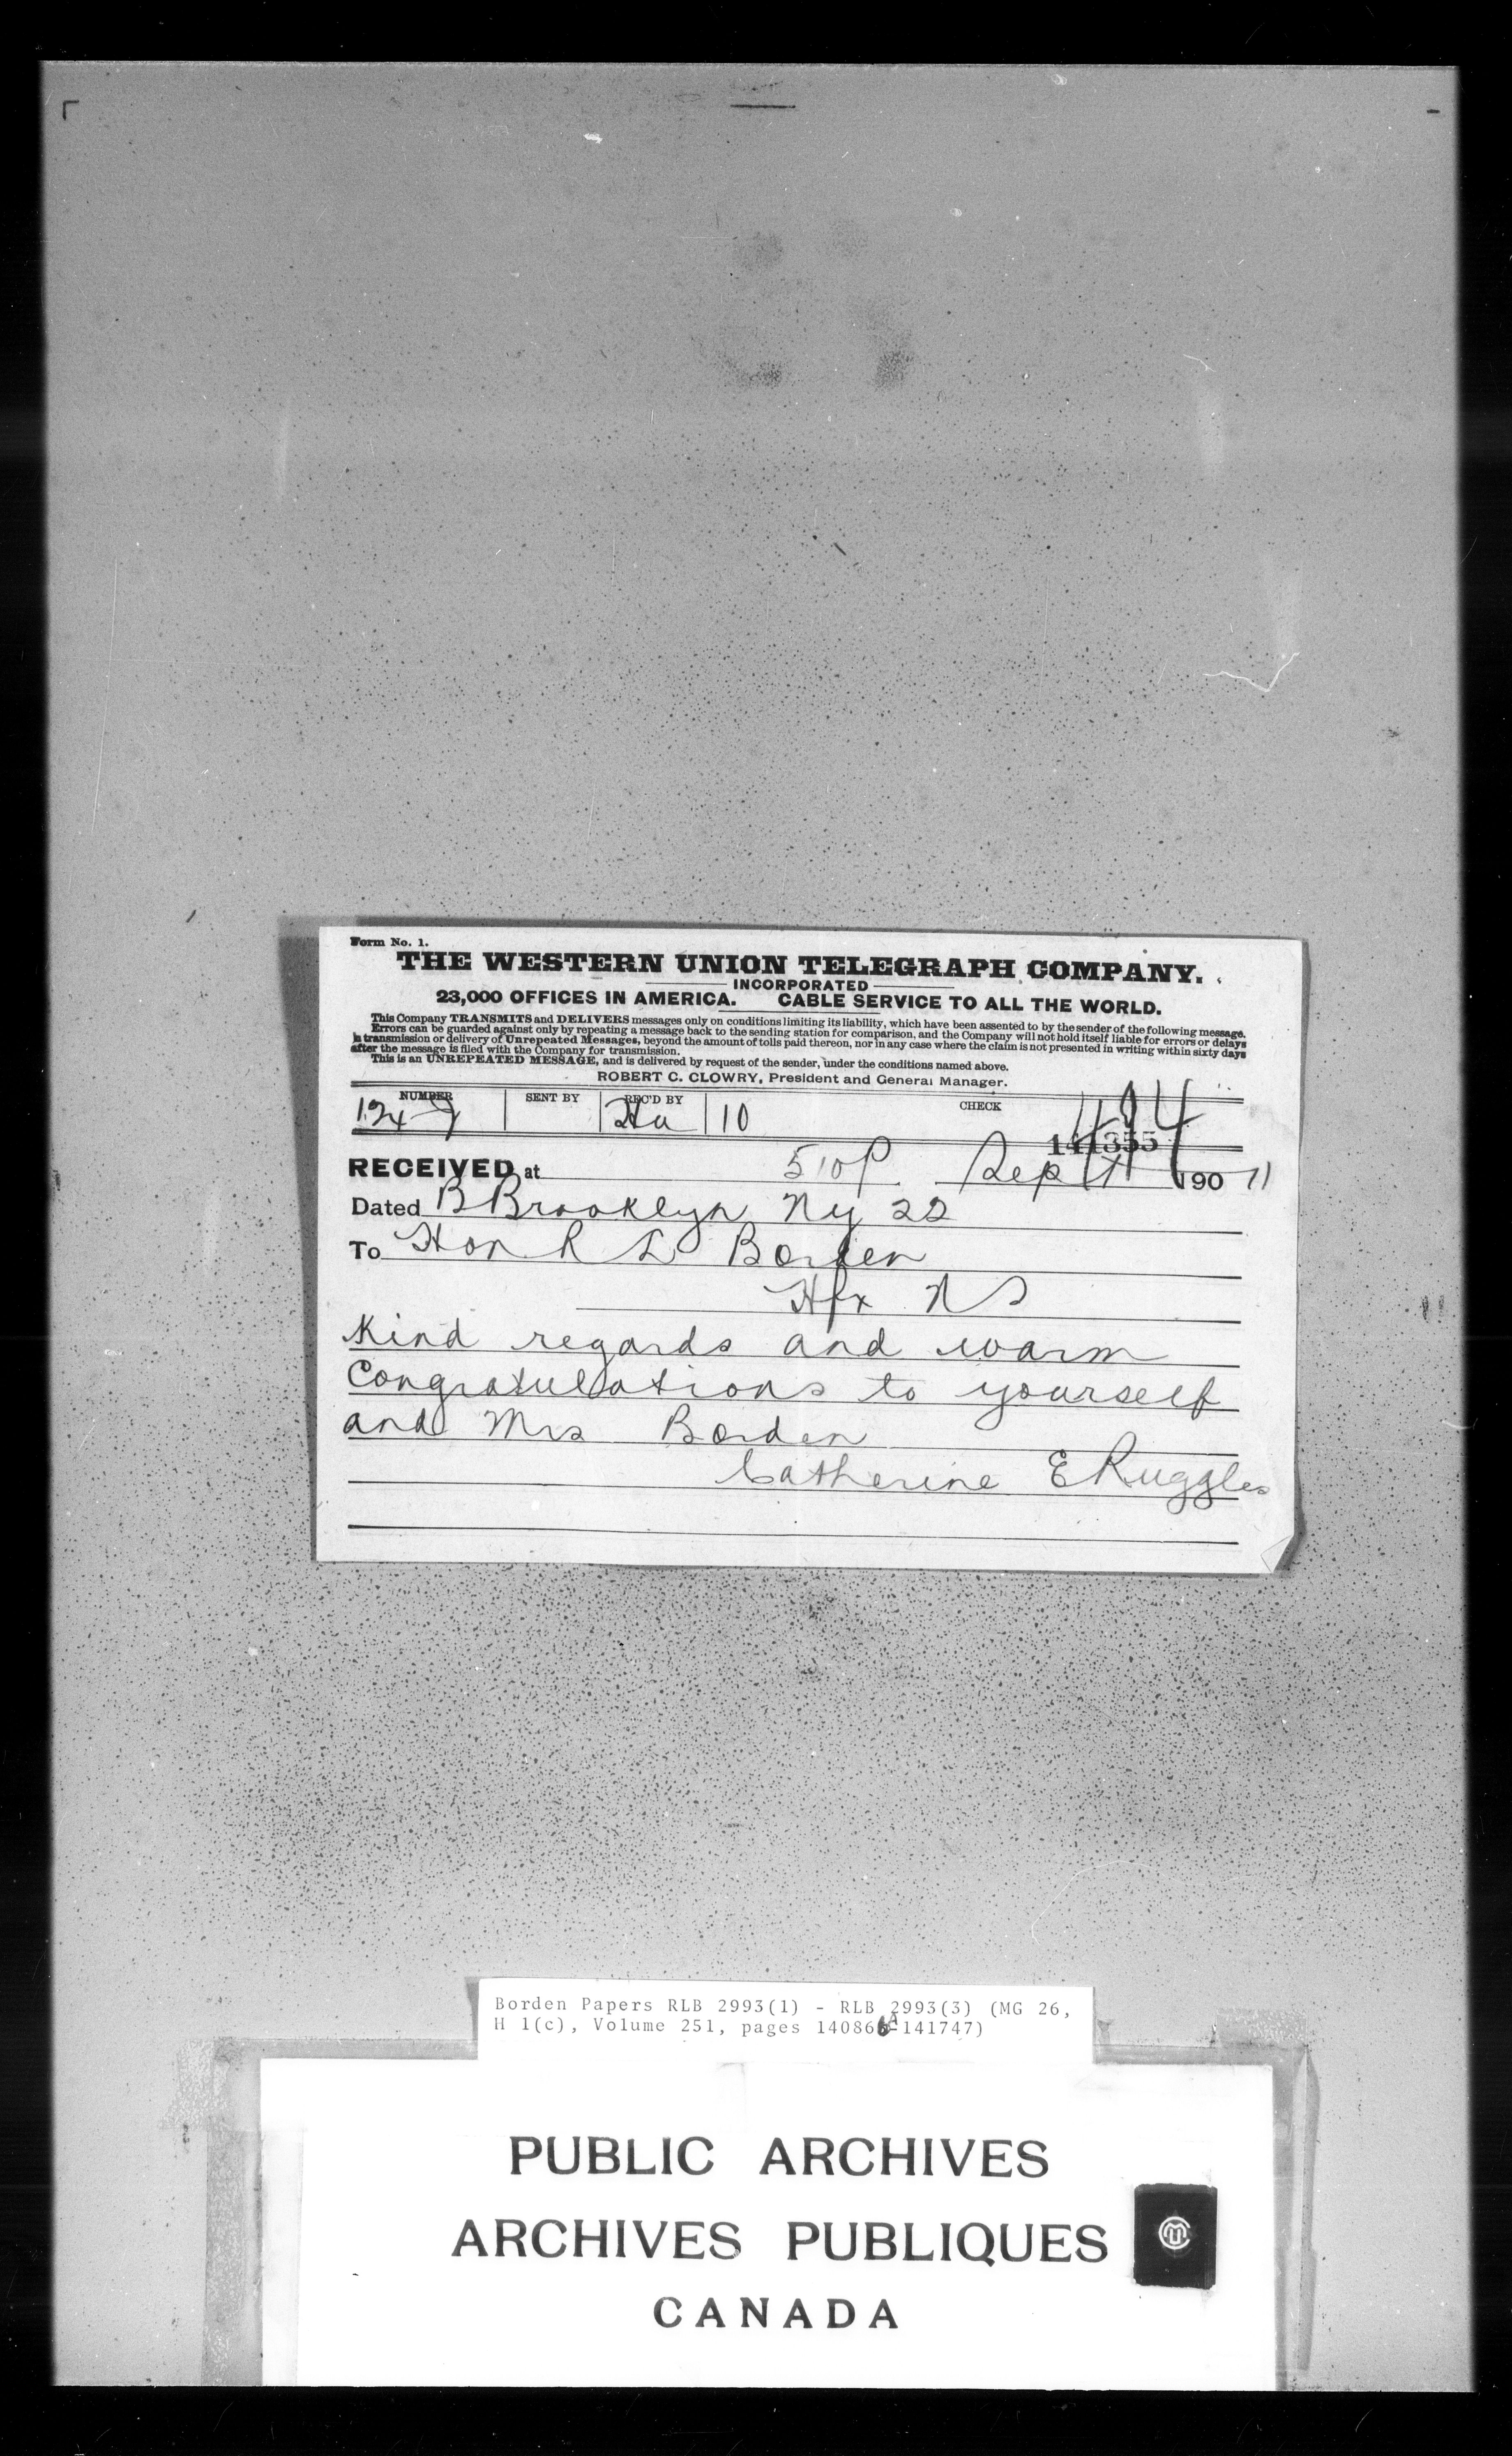 Form No. 1.
THE WESTERN UNION TELEGRAPH COMPANY.
INCORPORATED
23,000 OFFICES IN AMERICA. CABLE SERVICE TO ALL THE WORLD.
This Company TRANSMITS and DELIVERS messages only on conditions limiting its liability, which have been assented to by the sender of the following message.
Errors can be guarded against only by repeating a message back to the sending station for comparison, and the Company will not hold itself liable for errors or delays
in transmission or delivery of Unrepeated Messages, beyond the amount of tolls paid thereon, nor in any case where the claim is not presented in writing within sixty days
after the message is filed with the Company for transmission.
This is an UNREPEATED MESSAGE, and is delivered by request of the sender, under the conditions named above.
ROBERT C. CLOWRY, President and General Manager.
NUMBER SENT BY REC'D BY CHECK
10
141355
RECEIVED at 510P Sep 190 11
Dated B Brooklyn Ny 22
To Hon R L Borden
Hfx N S
Kind regards and warm
Congratulations to yourself
and Mrs Borden
Catherine E Ruggles
Borden Papers RLB 2993(1) - RLB 2993(3) (MG 26,
H 1(c), Volume 251, pages 140866A-141747)
PUBLIC ARCHIVES
ARCHIVES PUBLIQUES
CANADA